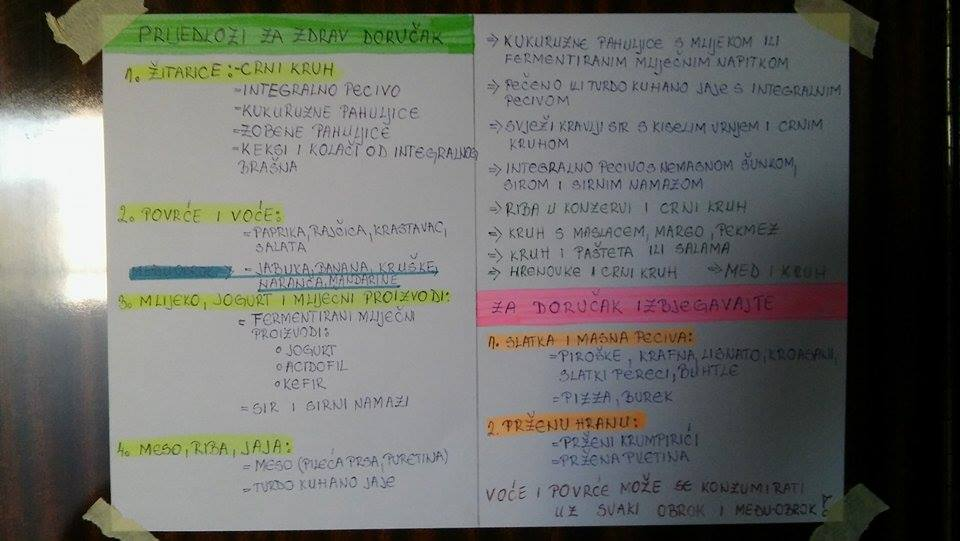 PRIJEDLOZI ZA ZDRAV DORUČAK
1. ŽITARICE: - CRNI KRUH
= INTEGRALNO PECIVO
= KUKURUZNE PAHULJICE
= ZOBENE PAHULJICE
= KEKSI I KOLAČI OD INTEGRALNOG
BRAŠNA
2. POVRĆE I VOĆE:
= PAPRIKA, RAJČICA, KRASTAVAC,
SALATA
MEĐUOBROK = JABUKA, BANANA, KRUŠKE,
NARANČA, MANDARINE
3. MLIJEKO, JOGURT I MLIJEČNI PROIZVODI:
= FERMENTIRANI MLIJEČNI
PROIZVODI:
° JOGURT
° ACIDOFIL
° KEFIR
= SIR I SIRNI NAMAZI
4. MESO, RIBA, JAJA:
= MESO (PILEĆA PRSA, PURETINA)
= TVRDO KUHANO JAJE
⇒ KUKURUZNE PAHULJICE S MLIJEKOM ILI
FERMENTIRANIM MLIJEČNIM NAPITKOM
⇒ PEČENO ILI TVRDO KUHANO JAJE S INTEGRALNIM
PECIVOM
⇒ SVJEŽI KRAVLJI SIR S KISELIM VRHNJEM I CRNIM
KRUHOM
⇒ INTEGRALNO PECIVO S NEMASNOM ŠUNKOM,
SIROM I SIRNIM NAMAZOM
⇒ RIBA U KONZERVI I CRNI KRUH
⇒ KRUH S MASLACEM, MARGO, PEKMEZ
⇒ KRUH I PAŠTETA ILI SALAMA
⇒ HRENOVKE I CRNI KRUH ⇒ MED I KRUH
ZA DORUČAK IZBJEGAVAJTE
1. SLATKA I MASNA PECIVA:
= PIROŠKE, KRAFNA, LISNATO, KROASANI,
SLATKI PERECI, BUHTLE
= PIZZA, BUREK
2. PRŽENU HRANU:
= PRŽENI KRUMPIRIĆI
= PRŽENA PILETINA
VOĆE I POVRĆE MOŽE SE KONZUMIRATI
UZ SVAKI OBROK I MEĐUOBROK!